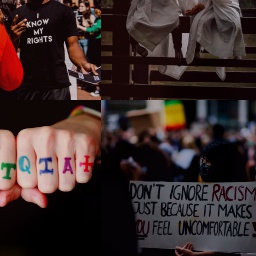 I
KNOW
MY
RIGHTS
TQIA+
DON'T IGNORE RACISM
JUST BECAUSE IT MAKES
YOU FEEL UNCOMFORTABLE!